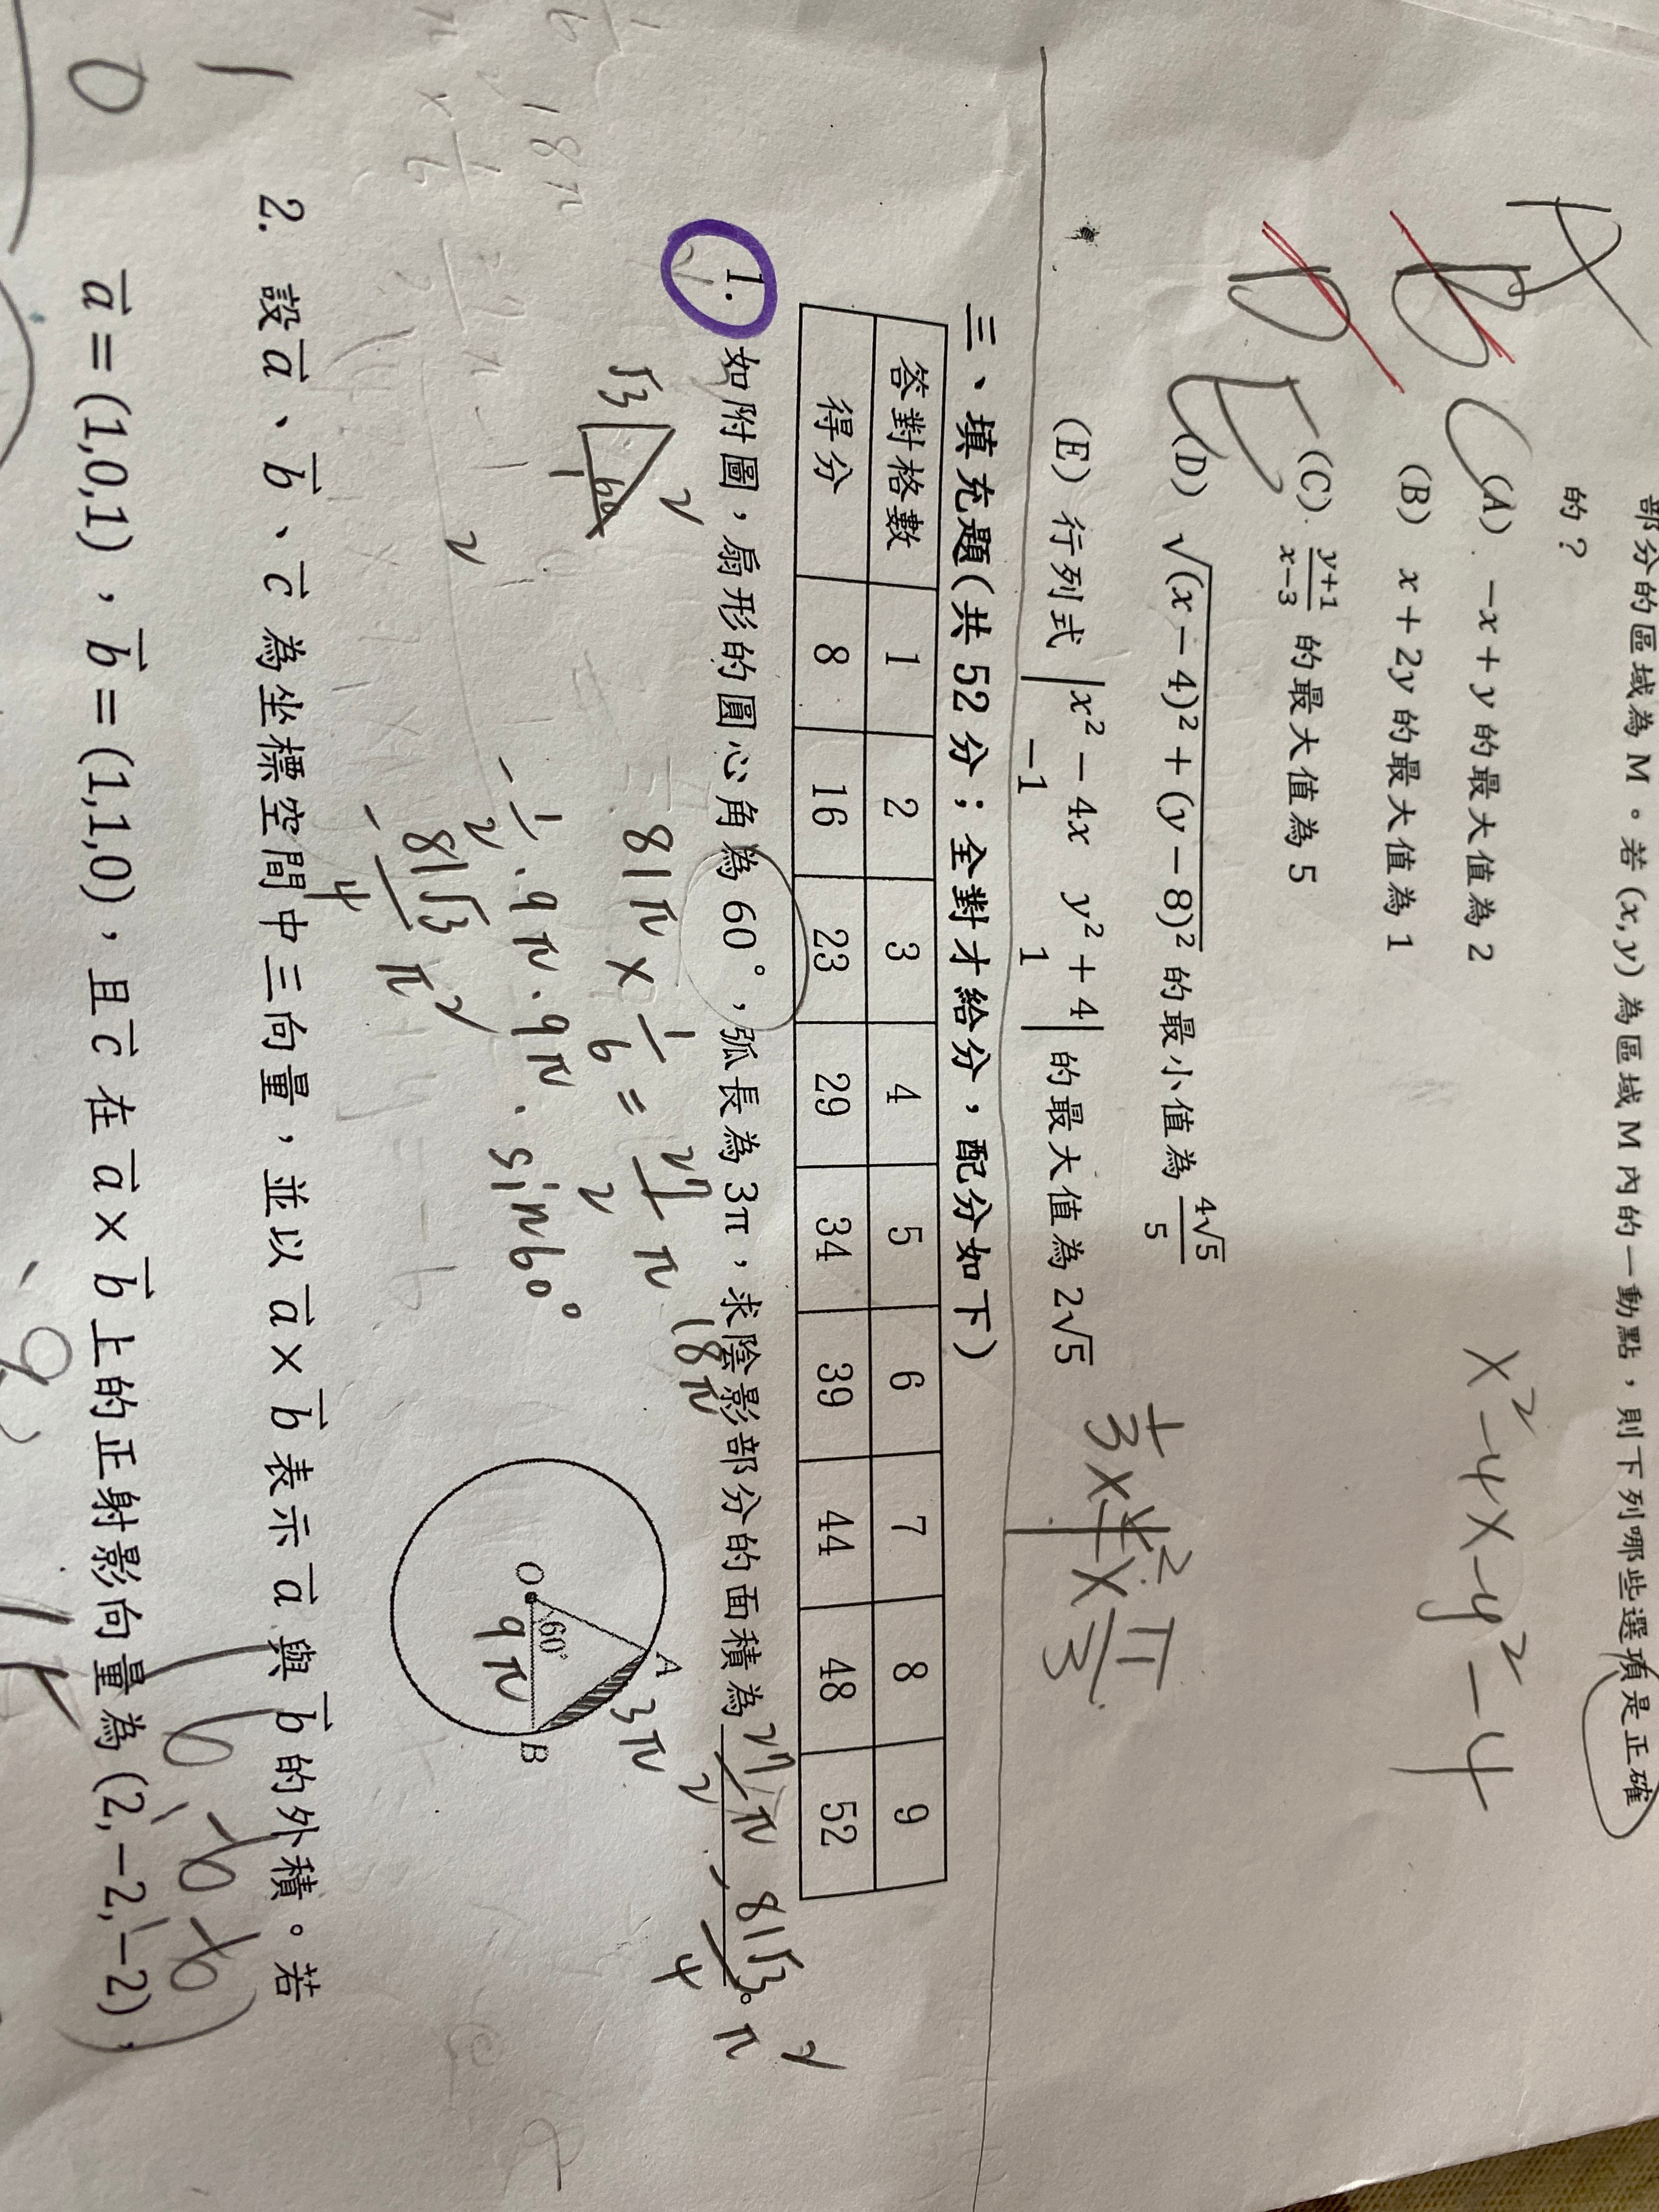 部分的區域為 M。若 (x, y) 為區域 M 內的一動點，則下列哪些選項是正確
的？
(A) −x + y 的最大值為 2
(B) x + 2y 的最大值為 1
(C) \frac{y+1}{x−3} 的最大值為 5
(D) √((x − 4)² + (y − 8)²) 的最小值為 \frac{4√5}{5}
(E) 行列式 |x² − 4x y² + 4|
−1 1
的最大值為 2√5
x² − 4x − y² − 4
三、填充題(共 52 分；全對才給分，配分如下)
答對格數 1 2 3 4 5 6 7 8 9
得分 8 16 23 29 34 39 44 48 52
1. 如附圖，扇形的圓心角為 60°，弧長為 3π，求陰影部分的面積為 \frac{27}{2}π - \frac{81√3}{4}π²。
18π
√3 2 1 60
81π × \frac{1}{6} = \frac{27}{2}π
- \frac{1}{2} · 9π · 9π · sin60°
- \frac{81√3}{4}π²
A 3π
O 60° B
9π
2. 設 a⃗、b⃗、c⃗ 為坐標空間中三向量，並以 a⃗ × b⃗ 表示 a⃗ 與 b⃗ 的外積。若
a⃗ = (1,0,1)，b⃗ = (1,1,0)，且 c⃗ 在 a⃗ × b⃗ 上的正射影向量為 (2,−2,−2)，